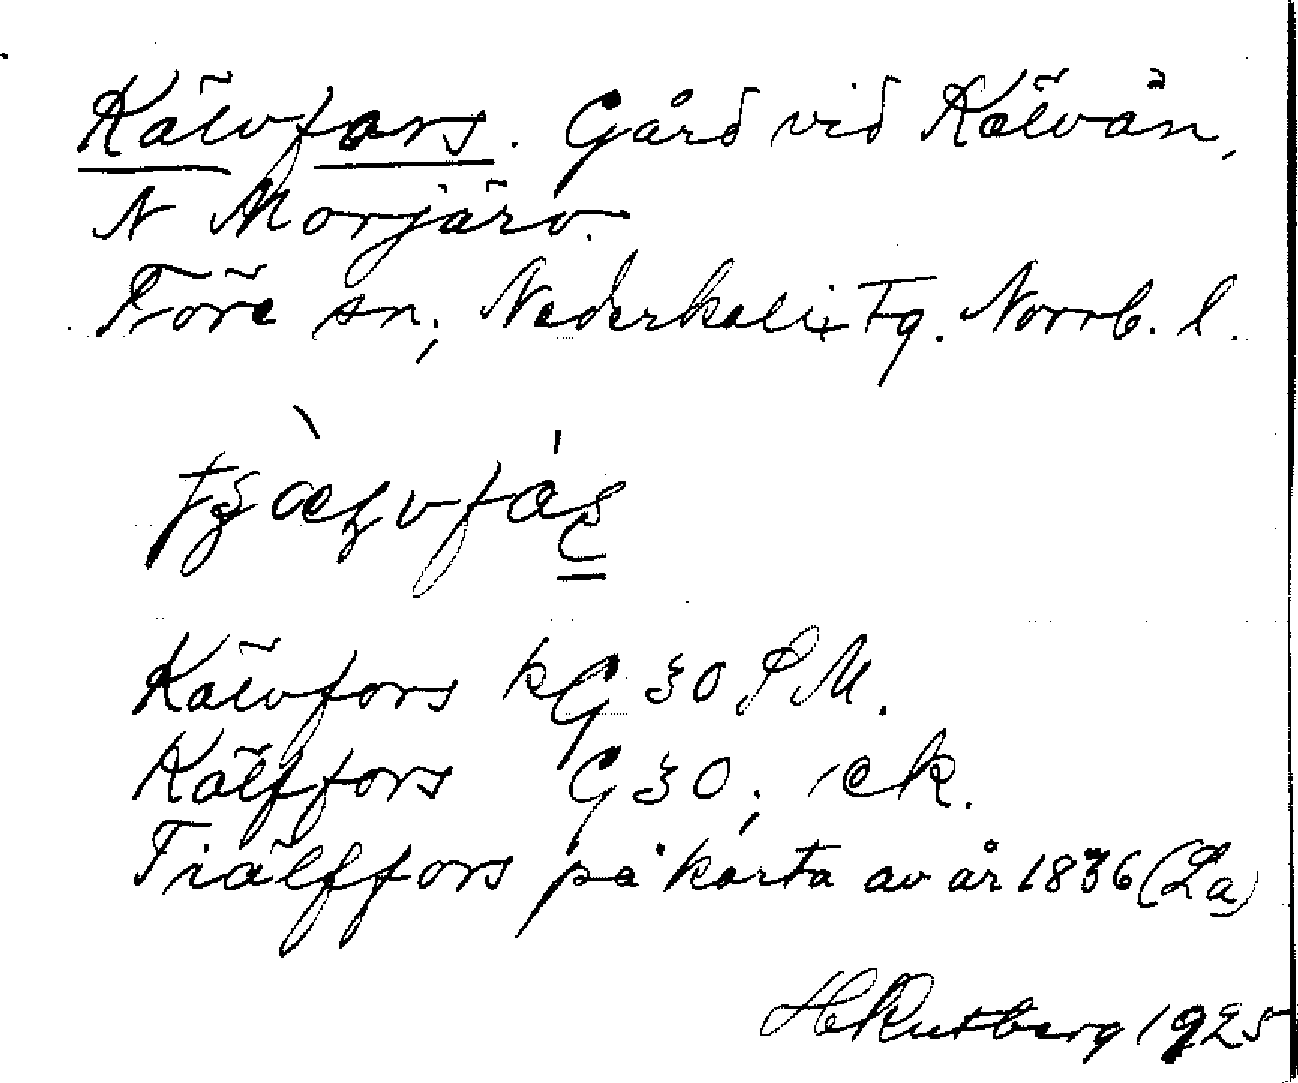 Kälvfors. Gård vid Kälvån,
N Morjärv.
Töre sn, Nederkalix tg. Norrb. l.
Kälvfors kG 30 PM.
Kälffors G 30, ek.
Tiälffors på karta av år 1836 (La)
H Rutberg 1925